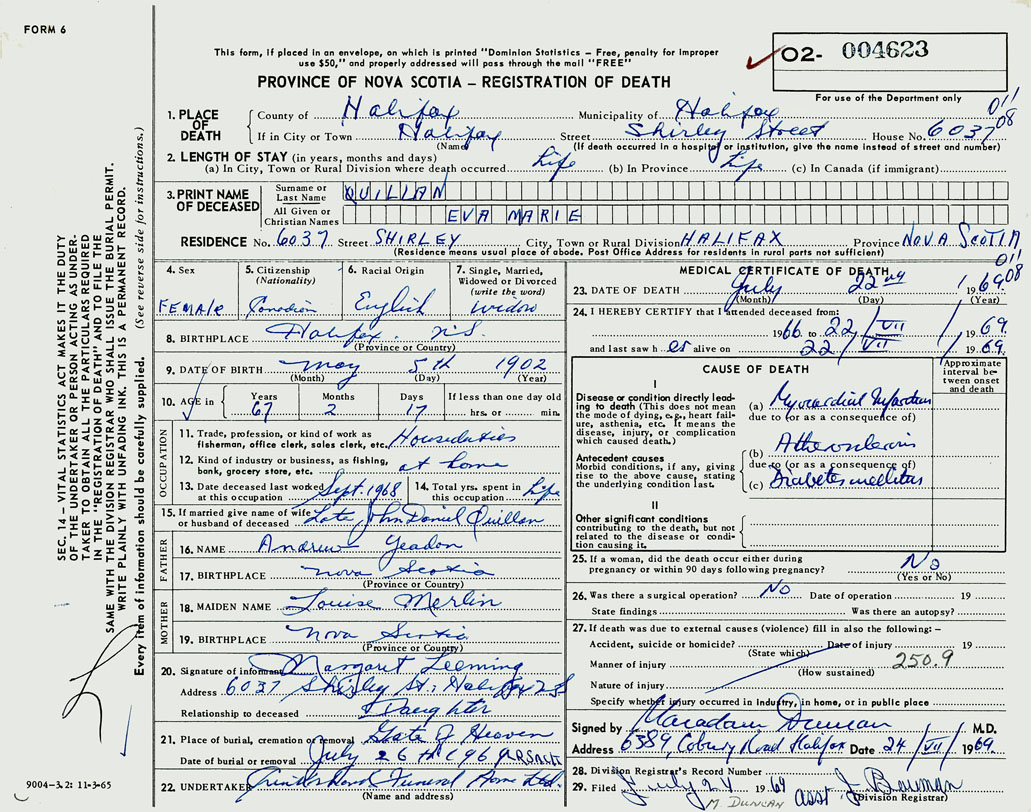 FORM 6
This form, if placed in an envelope, on which is printed "Dominion Statistics – Free, penalty for improper
use $50," and properly addressed will pass through the mail "FREE"
PROVINCE OF NOVA SCOTIA – REGISTRATION OF DEATH
O2- 004623
For use of the Department only
011
08
1. PLACE OF DEATH
County of Halifax Municipality of Halifax
If in City or Town Halifax Street Shirley Street House No. 6037
(Name) (If death occurred in a hospital or institution, give the name instead of street and number)
2. LENGTH OF STAY (in years, months and days)
(a) In City, Town or Rural Division where death occurred Life (b) In Province Life (c) In Canada (if immigrant)
3. PRINT NAME OF DECEASED
Surname or Last Name QUILLAN
All Given or Christian Names EVA MARIE
RESIDENCE No. 6037 Street SHIRLEY City, Town or Rural Division HALIFAX Province NOVA SCOTIA
(Residence means usual place of abode. Post Office Address for residents in rural parts not sufficient)
011
08
4. Sex FEMALE
5. Citizenship (Nationality) Canadian
6. Racial Origin English
7. Single, Married, Widowed or Divorced (write the word) widow
8. BIRTHPLACE Halifax, N.S.
(Province or Country)
9. DATE OF BIRTH May 5th 1902
(Month) (Day) (Year)
10. AGE in Years 67 Months 2 Days 17 If less than one day old hrs. or min.
OCCUPATION
11. Trade, profession, or kind of work as fisherman, office clerk, sales clerk, etc. Houseduties
12. Kind of industry or business, as fishing, bank, grocery store, etc. at home
13. Date deceased last worked at this occupation Sept. 1968
14. Total yrs. spent in this occupation Life
15. If married give name of wife or husband of deceased Late John Daniel Quillan
FATHER
16. NAME Andrew Yeadon
17. BIRTHPLACE Nova Scotia
(Province or Country)
MOTHER
18. MAIDEN NAME Louise Merlin
19. BIRTHPLACE Nova Scotia
(Province or Country)
20. Signature of informant Margaret Leeming
Address 6037 Shirley St., Halifax
Relationship to deceased Daughter
21. Place of burial, cremation or removal Gate of Heaven
Date of burial or removal July 26th 1969
22. UNDERTAKER Funeral Home Ltd.
(Name and address)
MEDICAL CERTIFICATE OF DEATH
23. DATE OF DEATH July 22nd 1969
(Month) (Day) (Year)
24. I HEREBY CERTIFY that I attended deceased from:
1966 to 22/VII/1969
and last saw her alive on 22/VII 1969
CAUSE OF DEATH
Approximate interval between onset and death
I
Disease or condition directly leading to death (This does not mean the mode of dying, e.g., heart failure, asthenia, etc. It means the disease, injury, or complication which caused death.)
(a) Myocardial Infarction
due to (or as a consequence of)
Antecedent causes
Morbid conditions, if any, giving rise to the above cause, stating the underlying condition last.
(b)
due to (or as a consequence of)
(c) Diabetes mellitus
II
Other significant conditions contributing to the death, but not related to the disease or condition causing it.
25. If a woman, did the death occur either during pregnancy or within 90 days following pregnancy? No
(Yes or No)
26. Was there a surgical operation? No Date of operation 19
State findings Was there an autopsy?
27. If death was due to external causes (violence) fill in also the following: –
Accident, suicide or homicide? Date of injury 19
(State which)
Manner of injury 250.9
(How sustained)
Nature of injury
Specify whether injury occurred in industry, in home, or in public place
Signed by Macadam Duncan M.D.
Address 6389 Coburg Road Halifax Date 24/VII/1969
28. Division Registrar's Record Number
29. Filed July 24 1969 asst J. Bowman
Division Registrar
M. DUNCAN
SEC. 14 – VITAL STATISTICS ACT MAKES IT THE DUTY
OF THE UNDERTAKER OR PERSON ACTING AS UNDER-
TAKER TO OBTAIN ALL THE PARTICULARS REQUIRED
IN THE "REGISTRATION OF DEATH" AND TO FILE THE
SAME WITH THE DIVISION REGISTRAR WHO SHALL ISSUE THE BURIAL PERMIT.
WRITE PLAINLY WITH UNFADING INK. THIS IS A PERMANENT RECORD.
Every item of information should be carefully supplied. (See reverse side for instructions.)
9004-3.2: 11-3-65